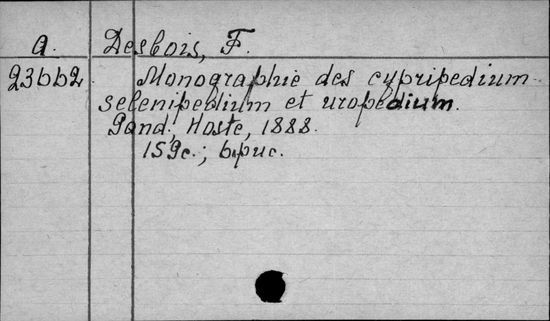 A. Desbois, F.
23662 Monographie des cypripedium
selenipedium et uropedium.
Gand, Hoste, 1888.
159c.; 6 рис.